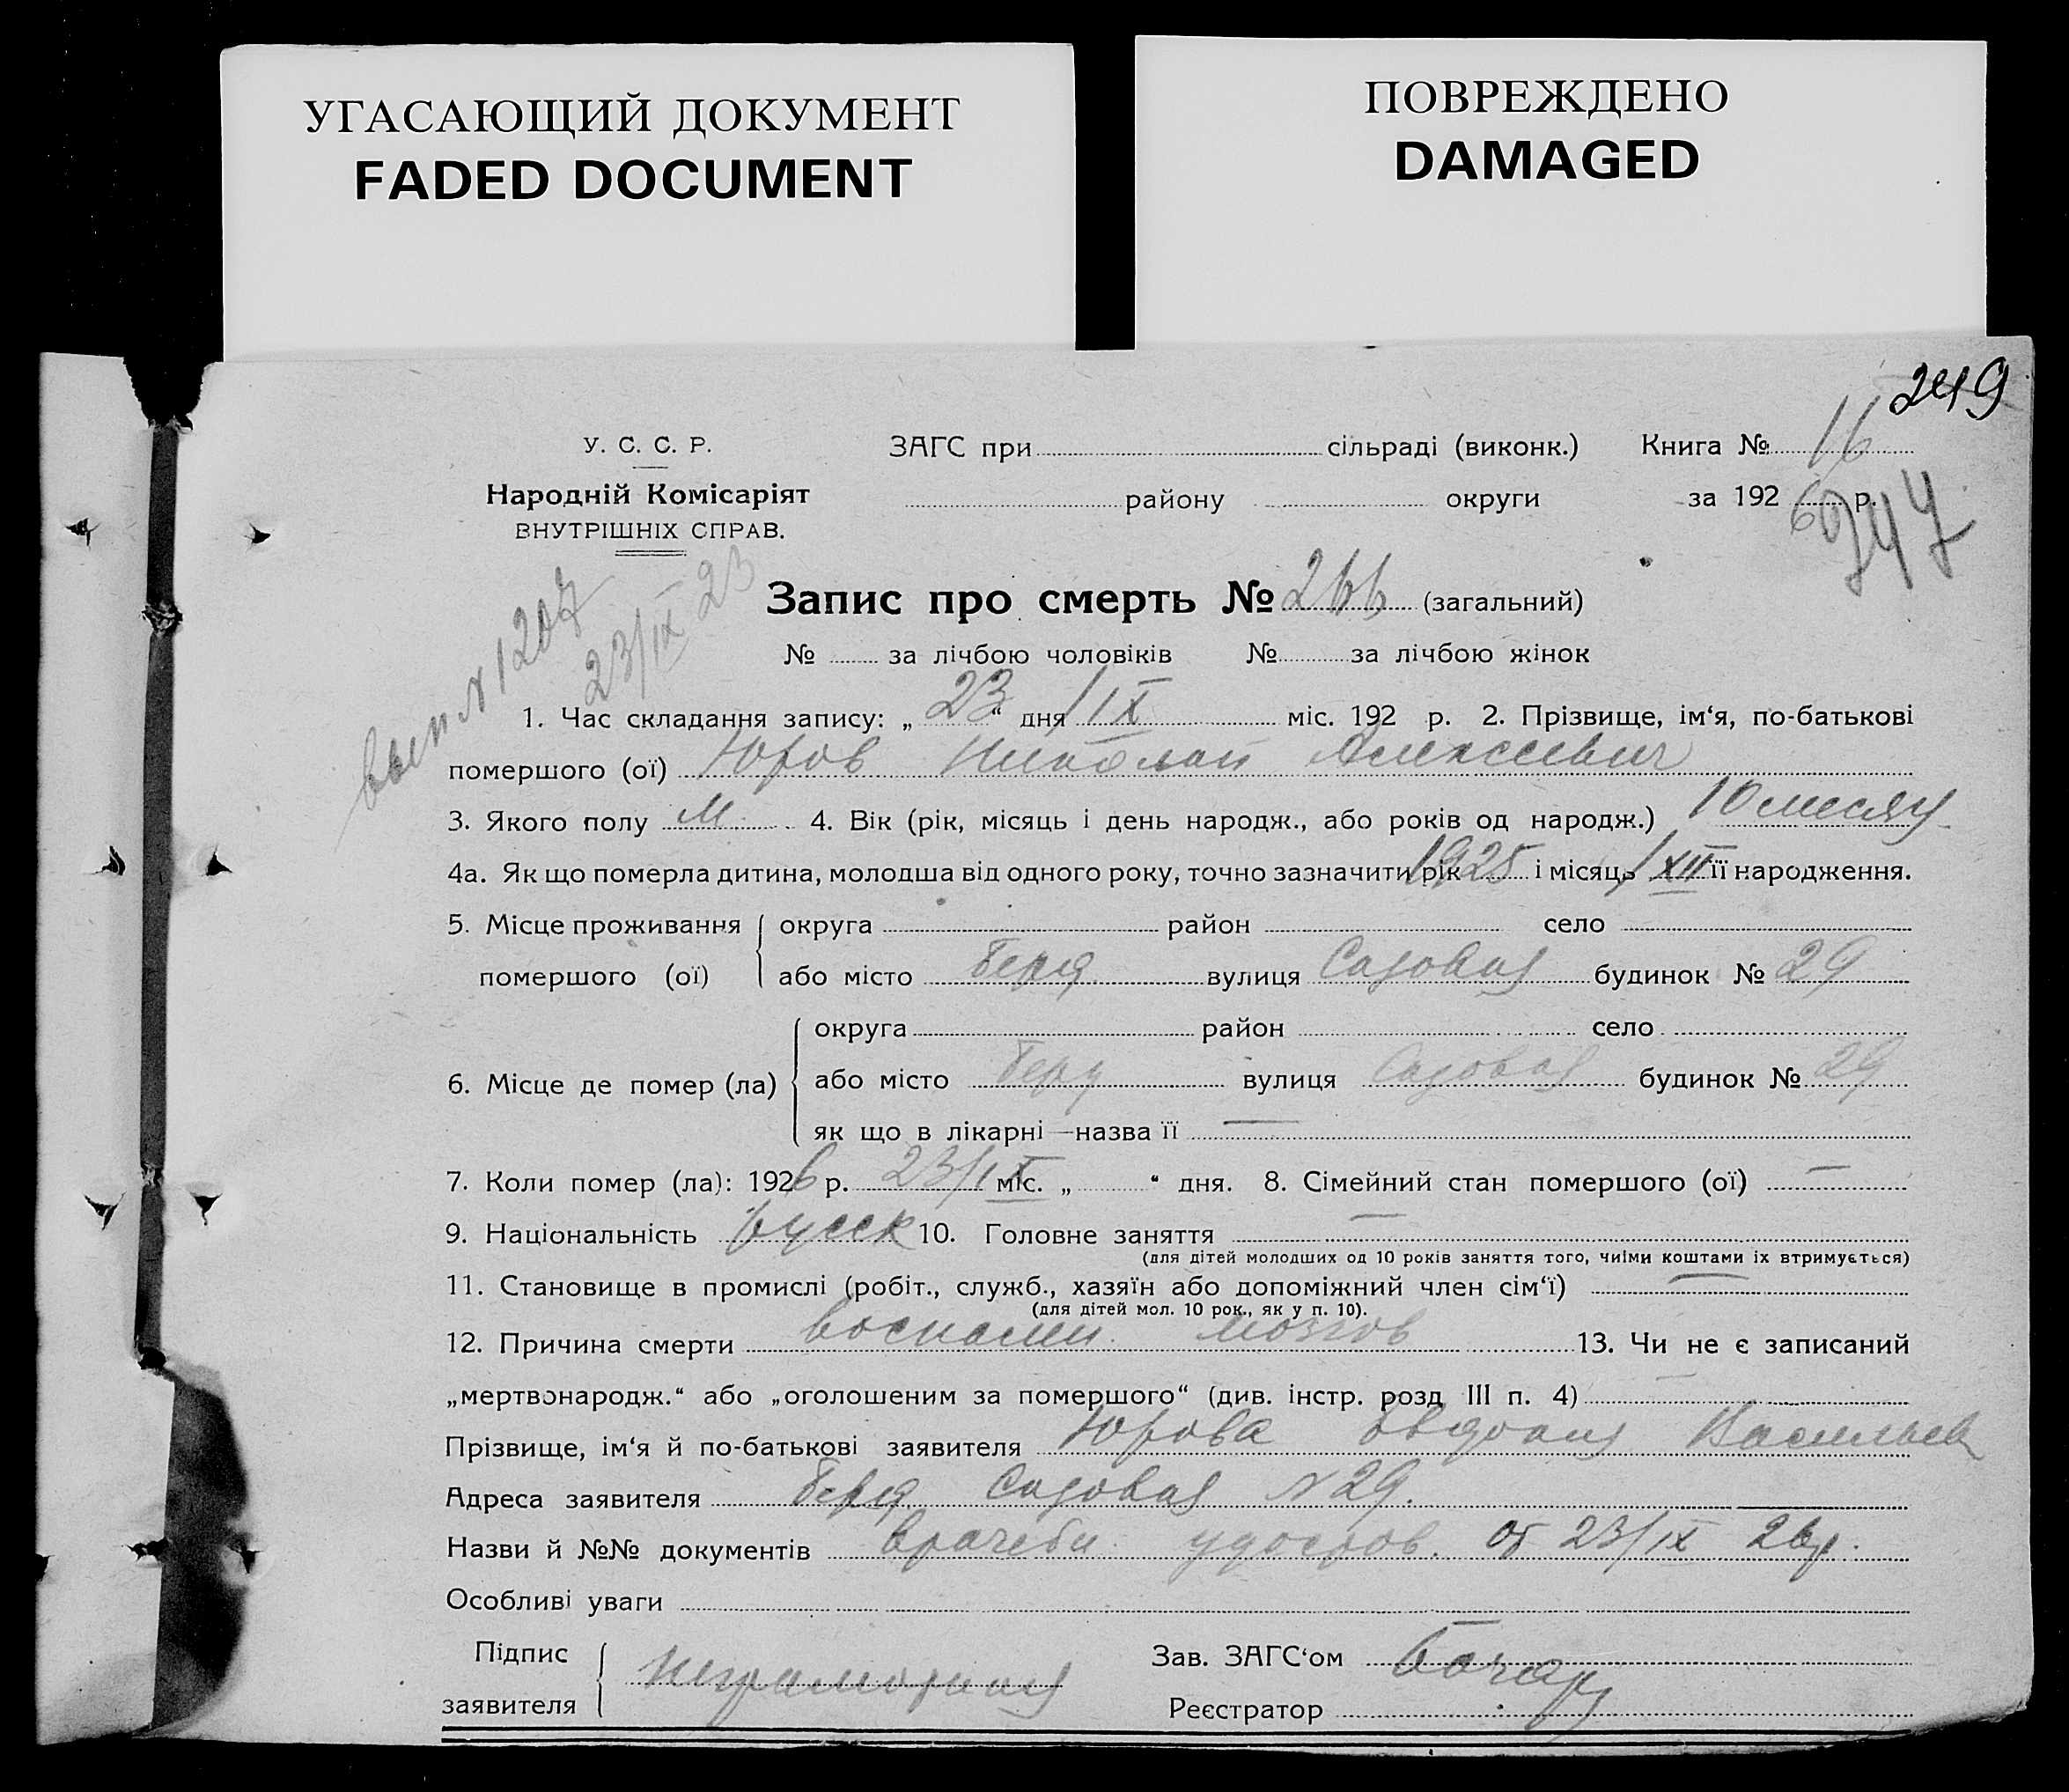 УГАСАЮЩИЙ ДОКУМЕНТ
FADED DOCUMENT
ПОВРЕЖДЕНО
DAMAGED
249
У. С. С. Р.
ЗАГС при сільраді (виконк.) Книга № 16
Народній Комісаріят
району округи за 192 6 р.
ВНУТРІШНІХ СПРАВ.
247
Запис про смерть № 266 (загальний)
№ за лічбою чоловіків № за лічбою жінок
вып N 1207
23/IX 23
1. Час складання запису: „ 23 “ дня /IX міс. 192 р. 2. Прізвище, ім‘я, по-батькові
помершого (ої) Юров Николай Алексеевич
3. Якого полу М. 4. Вік (рік, місяць і день народж., або років од народж.) 10 месяц
4а. Якщо померла дитина, молодша від одного року, точно зазначити рік 1925 і місяць /XII її народження.
5. Місце проживання округа район село
помершого (ої) або місто Берд вулиця Садовая будинок № 29
округа район село
6. Місце де помер (ла) або місто Берд вулиця Садовая будинок № 29
як що в лікарні — назва її —
7. Коли помер (ла): 1926 р. 23/IX міс. „ “ дня. 8. Сімейний стан помершого (ої) —
9. Національність русск 10. Головне заняття —
(для дітей молодших од 10 років заняття того, чиїми коштами їх втримується)
11. Становище в промислі (робіт., служб., хазяїн або допоміжний член сім‘ї) —
(для дітей мол. 10 рок., як у п. 10).
12. Причина смерти воспален. мозгов 13. Чи не є записаний
„мертвонародж.“ або „оголошеним за помершого“ (див. інстр. розд III п. 4) —
Прізвище, ім‘я й по-батькові заявителя Юрова Евдокия Васильев
Адреса заявителя Берд Садовая N 29.
Назви й №№ документів врачебн. удостов. от 23/IX 26 р.
Особливі уваги
Підпис
заявителя неграмотная
Зав. ЗАГС‘ом
Реєстратор